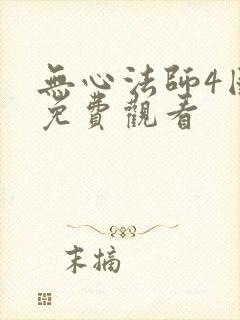 無心法師4
免費觀看
末摘